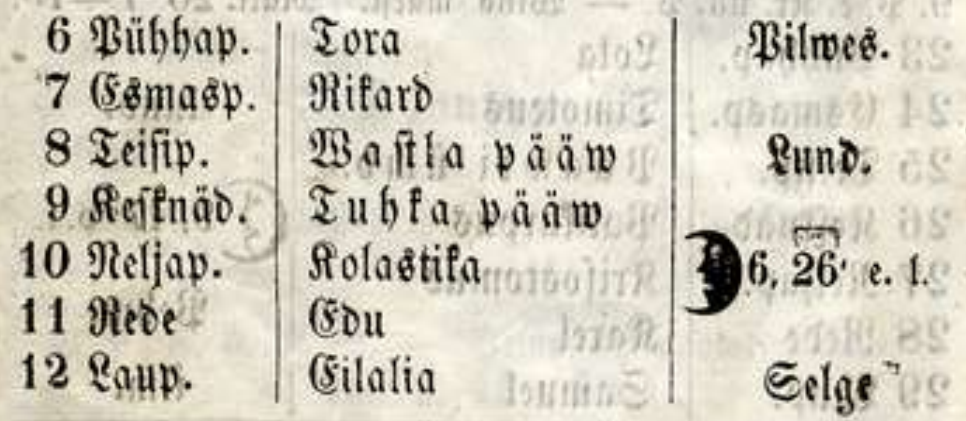 6 Pühhap. Tora Pilwes.
7 Esmasp. Rikard
8 Teisip. Wastla pääw Lund.
9 Kesknäd. Tuhka pääw
10 Neljap. Kolastika 6, 26' e. l.
11 Rede Edu
12 Laup. Eilalia Selge